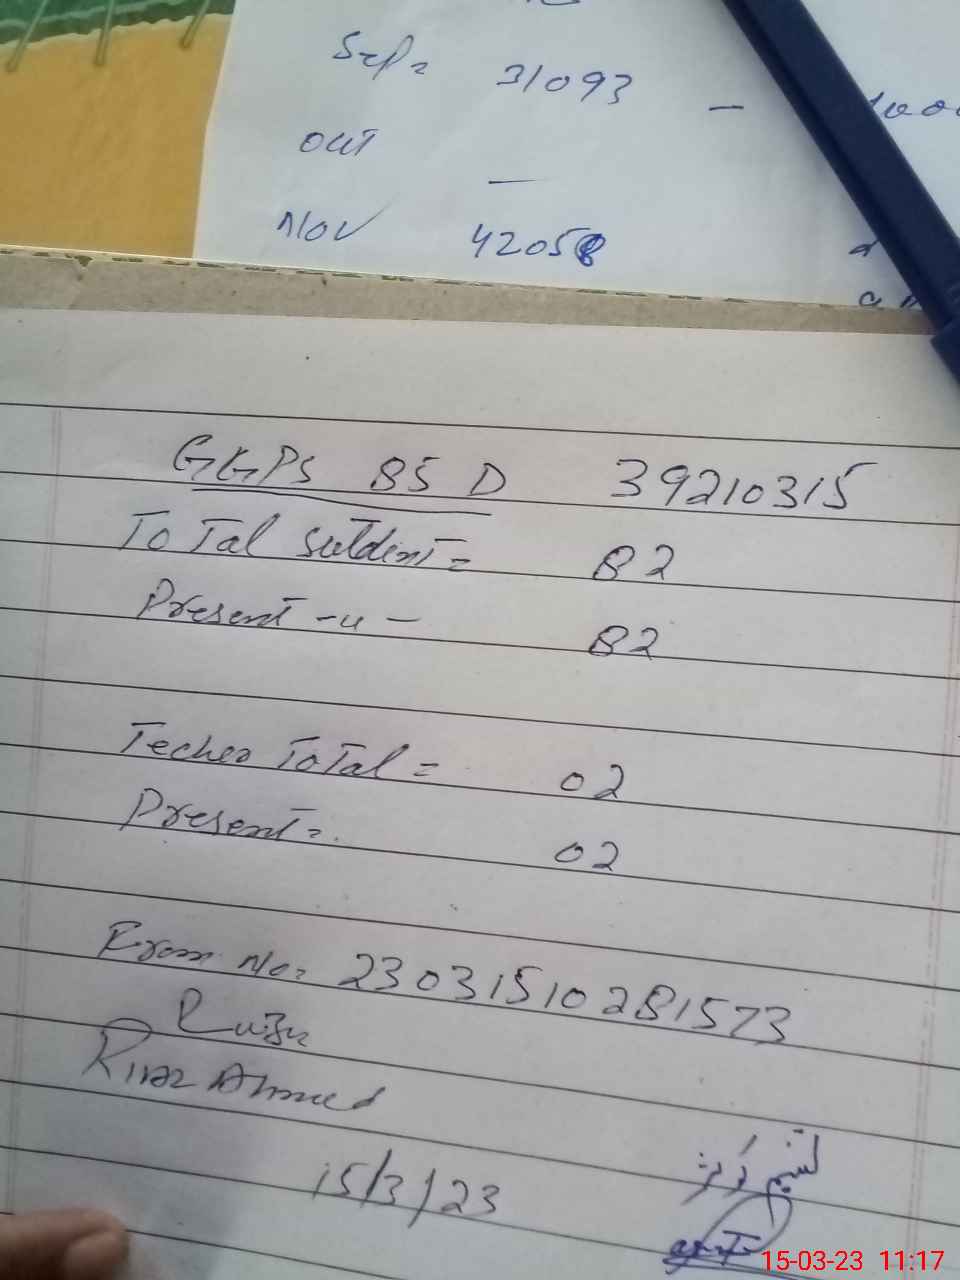 Sep= 31093 -
OCT -
NOV 42058
GGPS 85 D 39210315
ToTal Suldent= 82
Present -u- 82
Techer ToTal = 02
Present= 02
No= 23031510281573
Riaz Ahmed
15/3/23
15-03-23 11:17